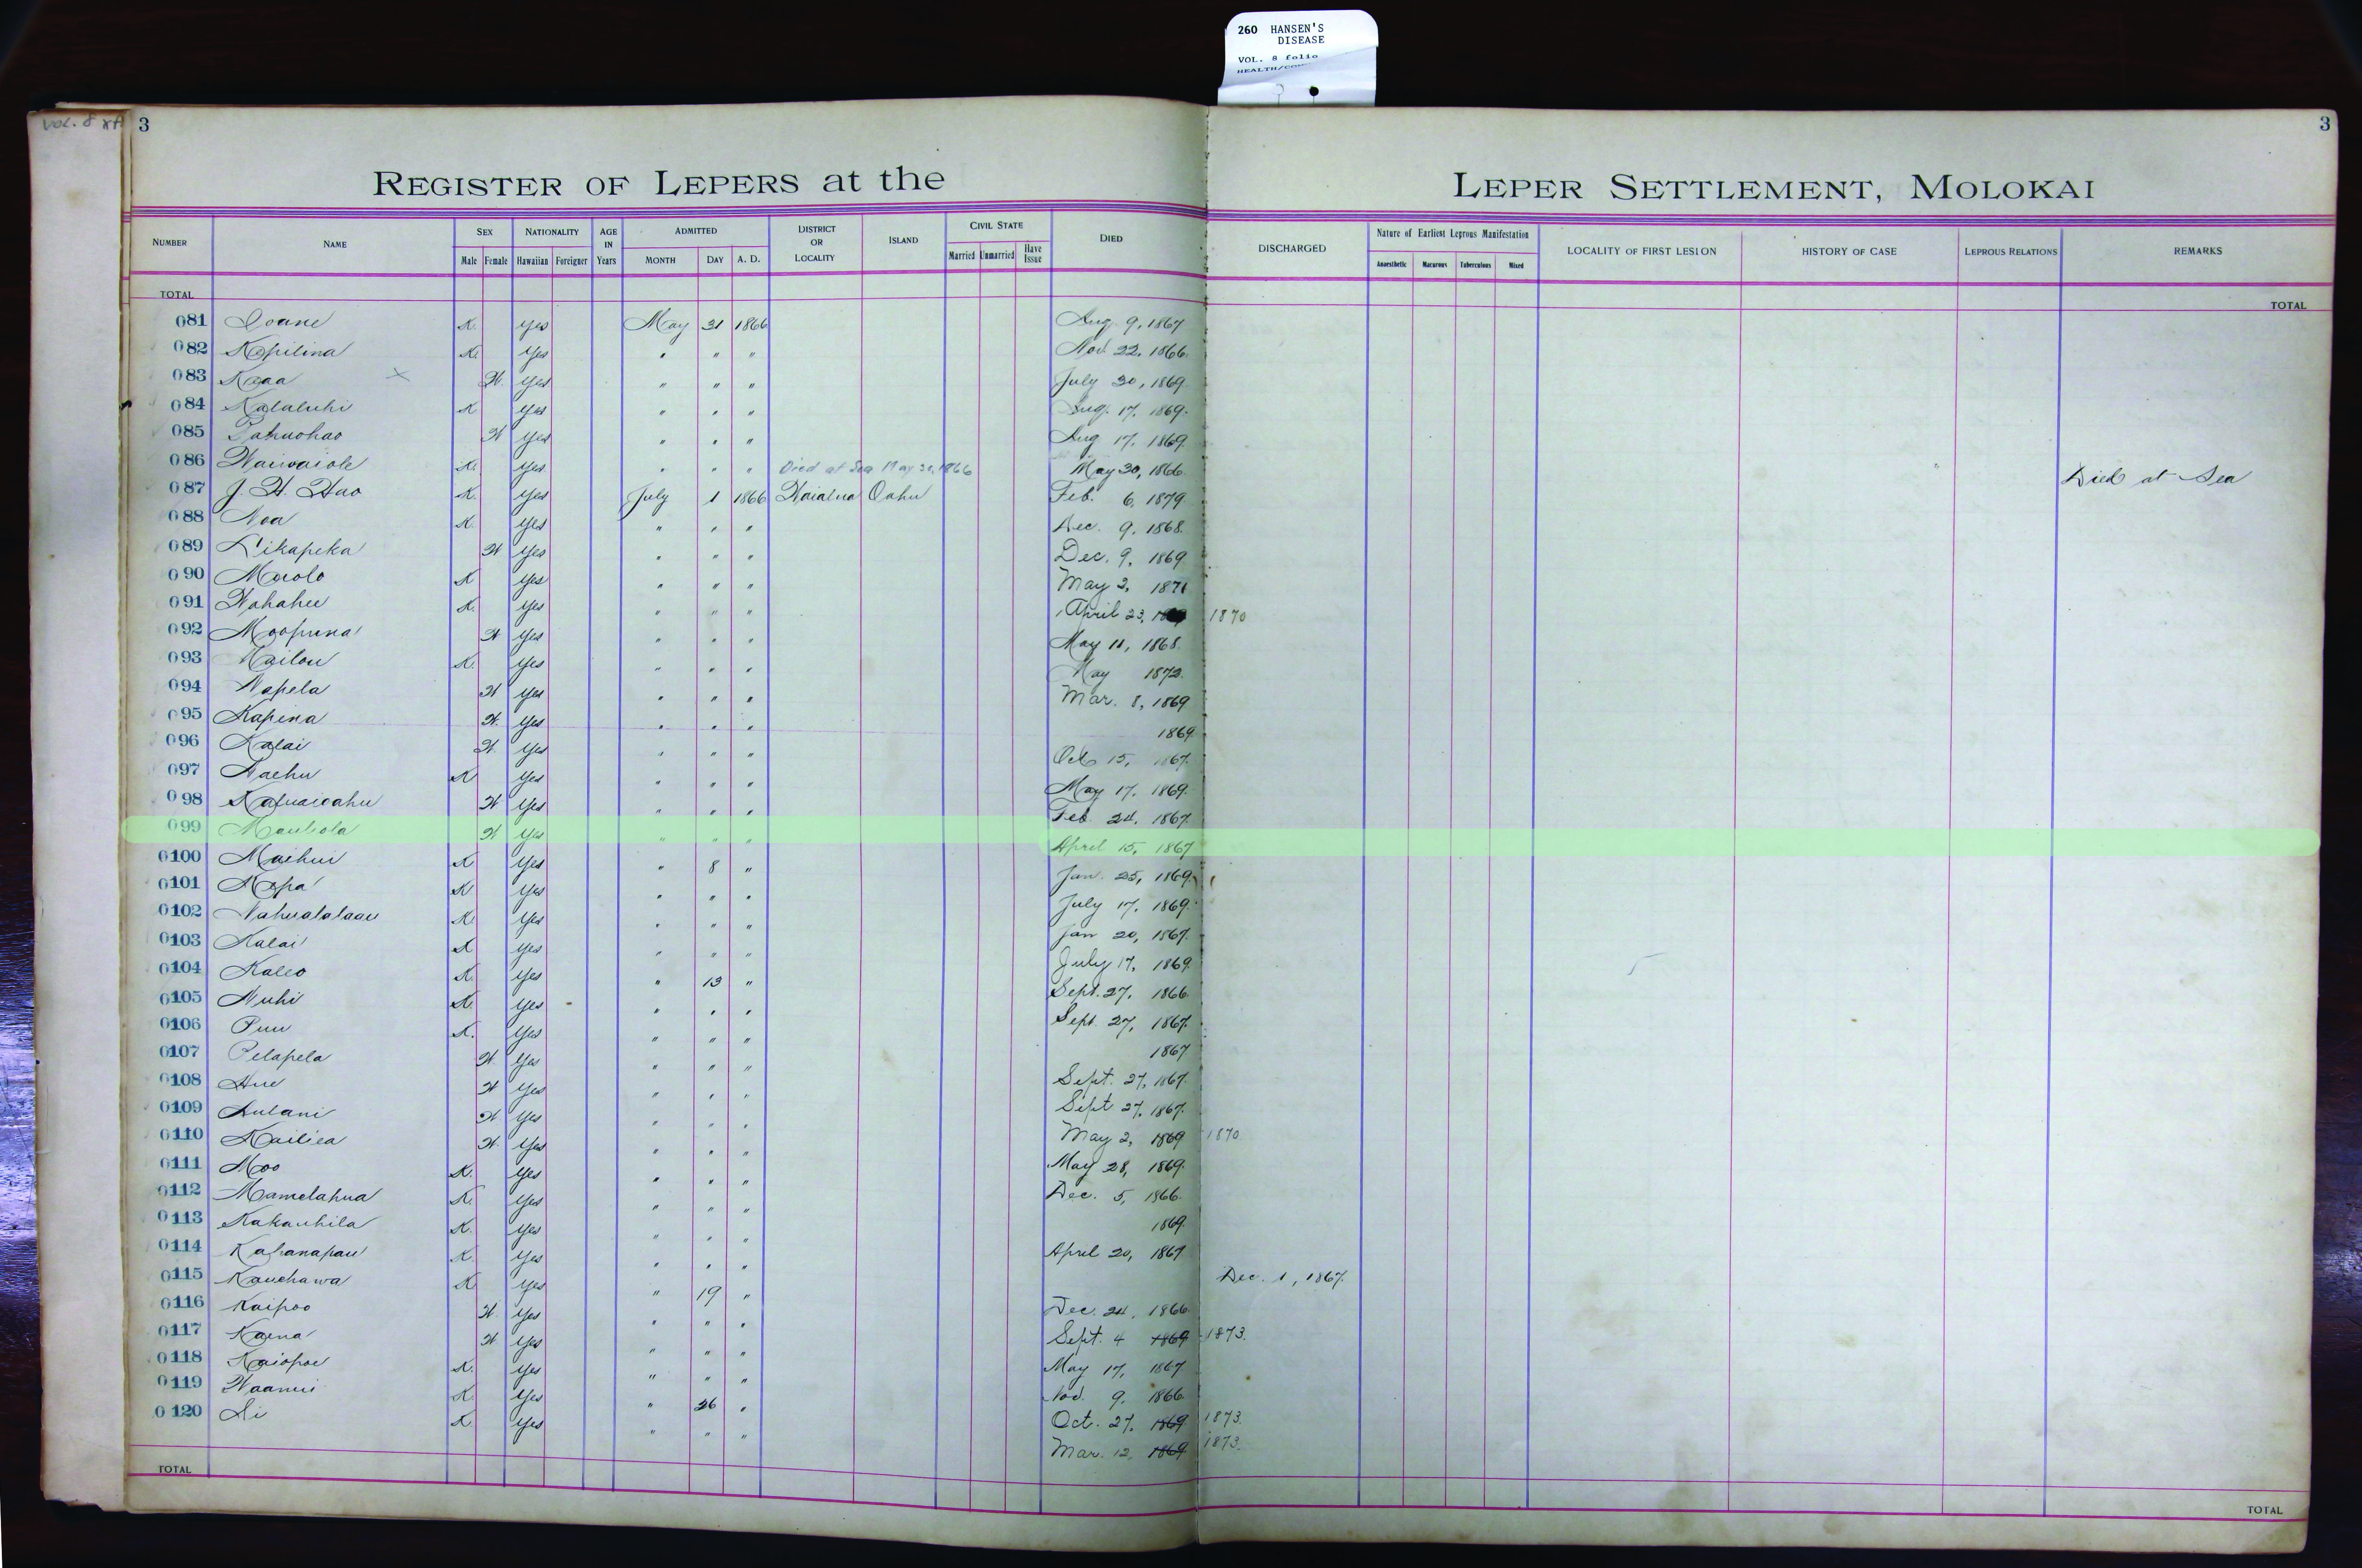 260 HANSEN'S
DISEASE
VOL. 8 folio
VOL. 8
3
3
REGISTER OF LEPERS at the LEPER SETTLEMENT, MOLOKAI
NUMBER NAME SEX Male Female NATIONALITY Hawaiian Foreigner AGE IN Years ADMITTED MONTH DAY A. D. DISTRICT OR LOCALITY ISLAND CIVIL STATE Married Unmarried Have Issue DIED DISCHARGED Nature of Earliest Leprous Manifestation Anaesthetic Macurous Tuberculous Mixed LOCALITY OF FIRST LESION HISTORY OF CASE LEPROUS RELATIONS REMARKS
TOTAL TOTAL
081 Ioane K. Yes May 31 1866 Aug. 9, 1867
082 Kapilina K. Yes " " " Nov. 22, 1866.
083 Kaaa x W. Yes " " " July 30, 1869.
084 Kalaluhi K Yes " " " Aug. 17, 1869.
085 Pahuohao W Yes " " " Aug 17, 1869.
086 Waiwaiole K. Yes " " " Died at Sea May 30, 1866 May 30, 1866. Died at Sea
087 J. H. Hao K. Yes July 1 1866 Waialua Oahu Feb. 6, 1879
088 Noa K. Yes " " " Dec. 9, 1868.
089 Likapeka W Yes " " " Dec. 9, 1869
090 Maolo K Yes " " " May 2, 1871
091 Wahahee K. Yes " " " April 23, 1870
092 Moopuna W Yes " " " May 11, 1868.
093 Kailou K. Yes " " " May 1872.
094 Napela W Yes " " " Mar. 8, 1869
095 Kapina W. Yes " " " 1869.
096 Kalai W. Yes " " " Oct 15, 1867.
097 Naehu K Yes " " " May 17, 1869.
098 Kafuaioahu W Yes " " " Feb. 24, 1867.
099 Mauliola W Yes " " " April 15, 1867
0100 Maihui K Yes " 8 " Jan. 25, 1869.
0101 Napa K Yes " " " July 17, 1869.
0102 Nahualalaau K Yes " " " Jan 20, 1867.
0103 Kalai K Yes " " " July 17, 1869.
0104 Kaleo K. Yes " 13 " Sept. 27, 1866.
0105 Nuhi K. Yes " " " Sept. 27, 1867.
0106 Puu K. Yes " " " 1867
0107 Pelapela W. Yes " " " Sept. 27, 1867.
0108 Hue W Yes " " " Sept 27, 1867.
0109 Aulani W. Yes " " " May 2, 1869 1870.
0110 Kailiea W. Yes " " " May 28, 1869.
0111 Moo K. Yes " " " Dec. 5, 1866.
0112 Mamelahua K. Yes " " " 1869.
0113 Kakauhila K. Yes " " " April 20, 1867
0114 Kahanapau K. Yes " " " Dec. 1, 1867.
0115 Kauehawa K. Yes " 19 " Dec. 24, 1866.
0116 Kaipoo W. Yes " " " Sept. 4 1869 1873.
0117 Kaena W Yes " " " May 17, 1867
0118 Kaiopoe K. Yes " " " Nov. 9, 1866.
0119 Waanui K. Yes " 26 " Oct. 27, 1869 1873.
0120 Li K. Yes " " " Mar. 12, 1869 1873.
TOTAL TOTAL